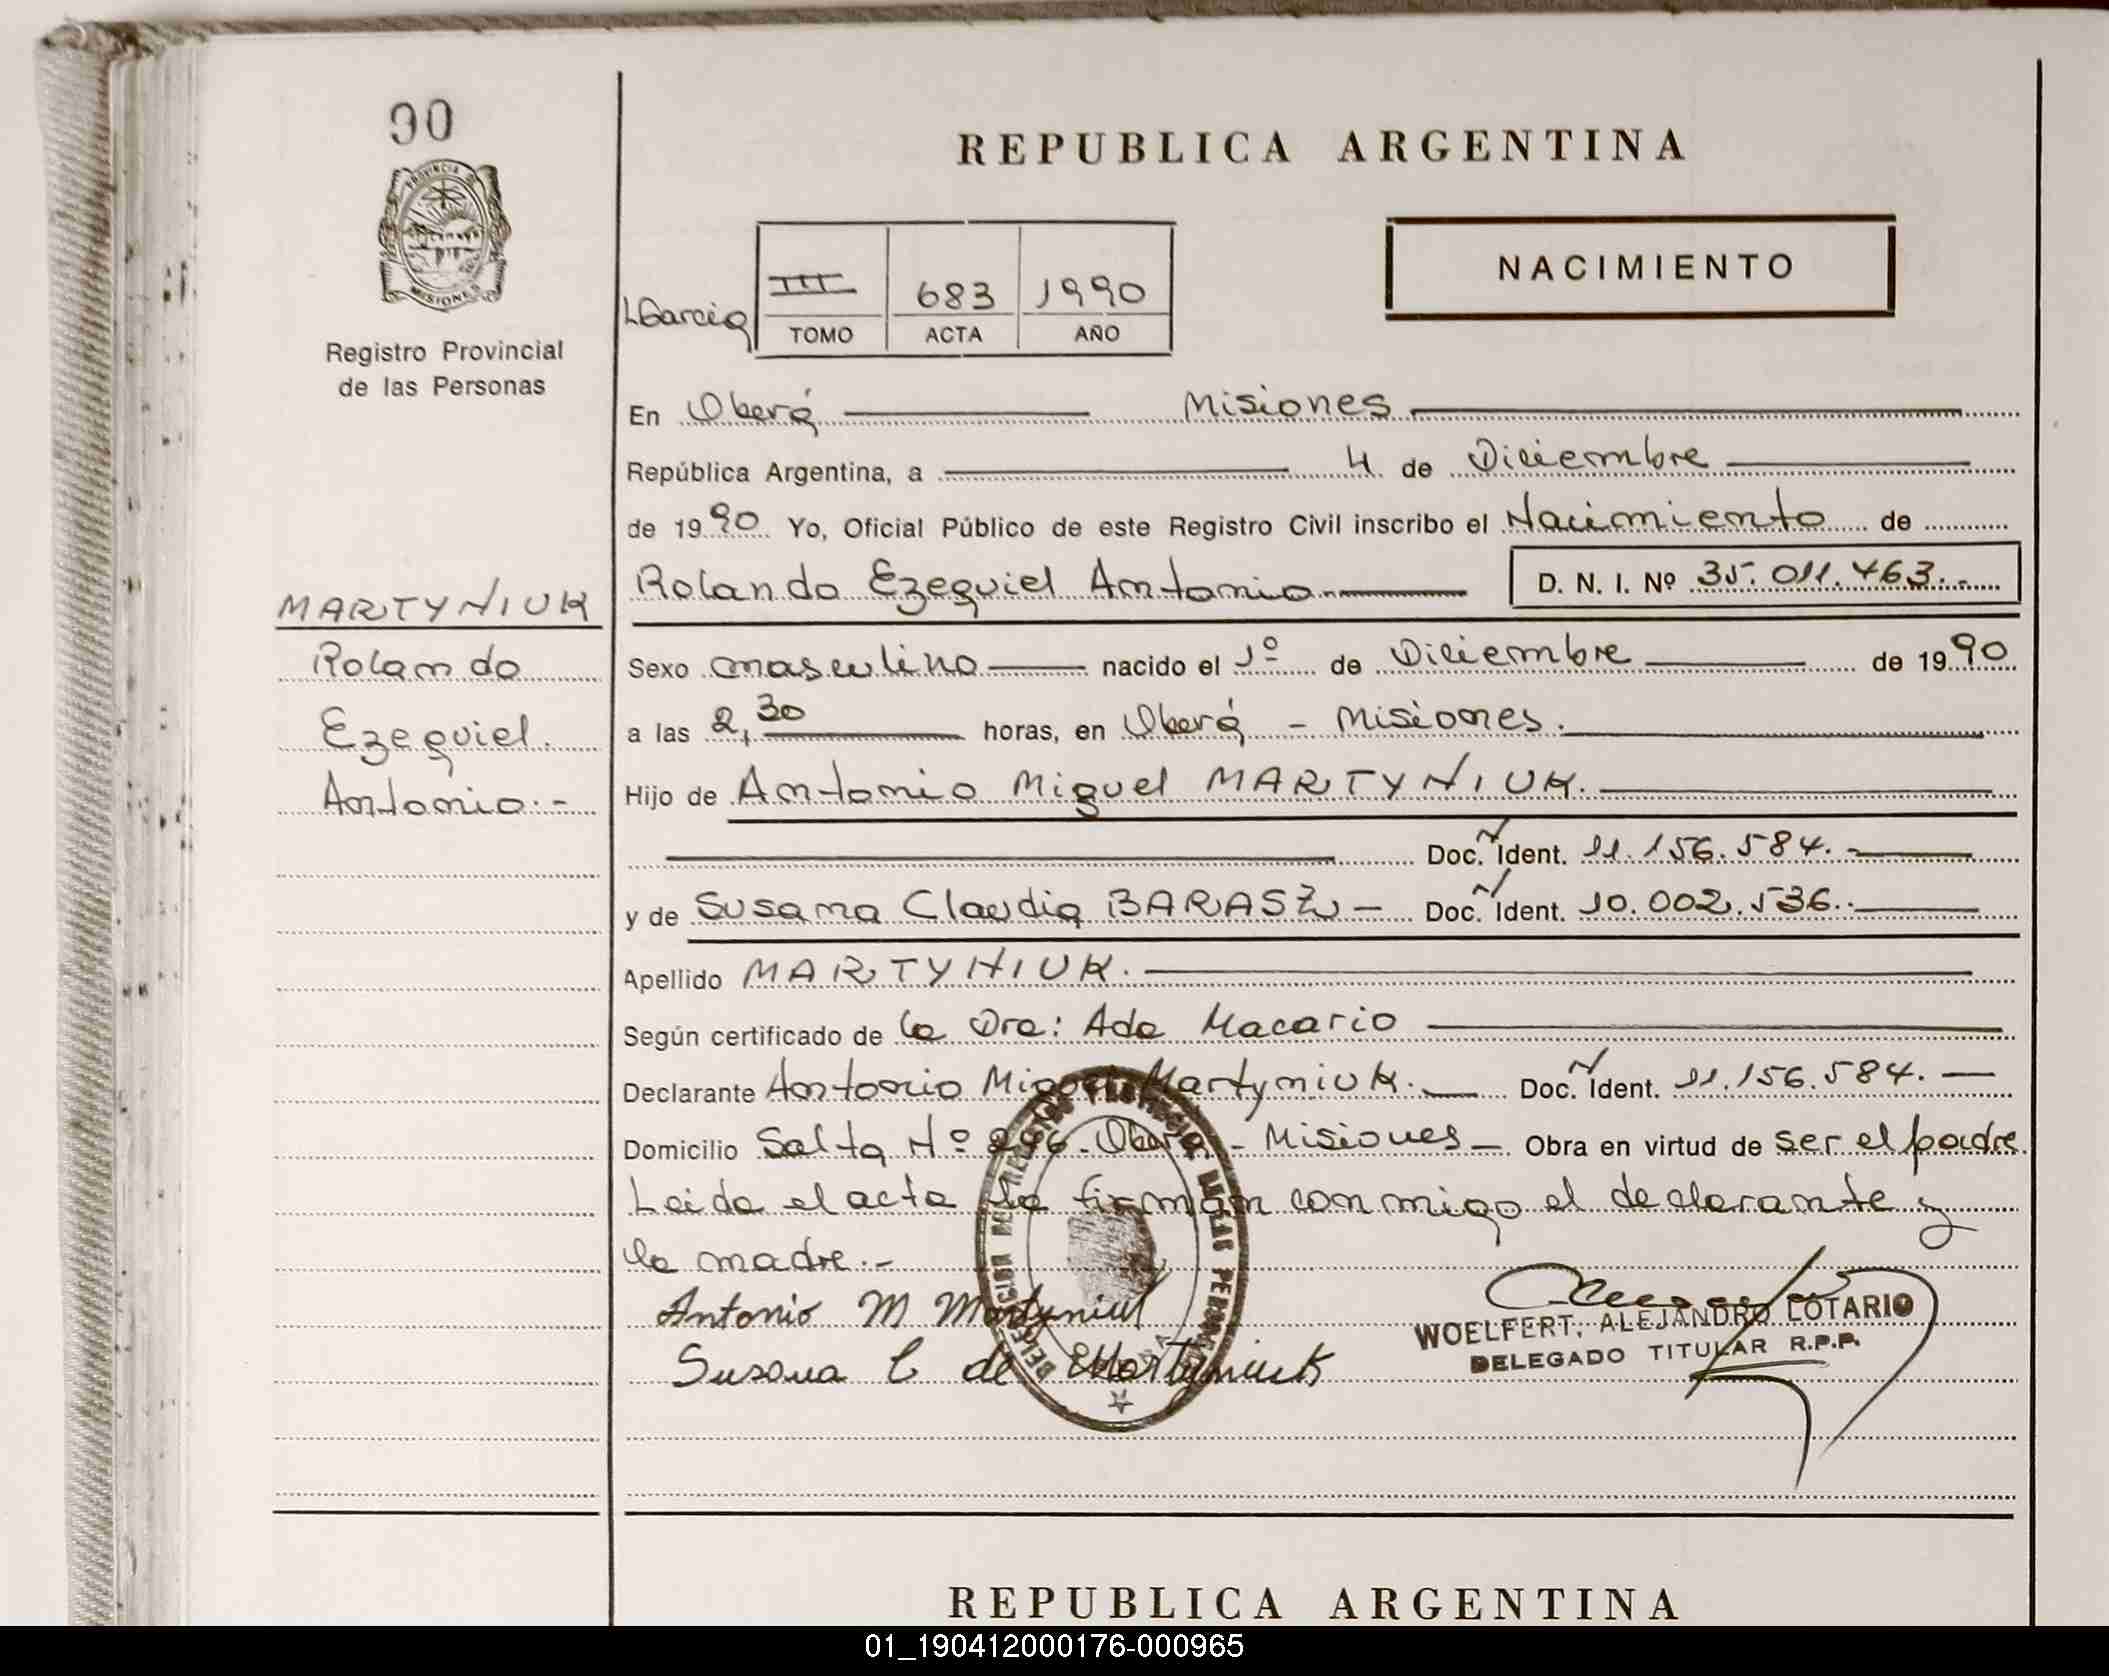 90
PROVINCIA DE
MISIONES
Registro Provincial
de las Personas
REPUBLICA ARGENTINA
NACIMIENTO
LGarcia
III 683 1990
TOMO ACTA AÑO
En Oberá Misiones
República Argentina, a 4 de Diciembre
de 1990 Yo, Oficial Público de este Registro Civil inscribo el Nacimiento de
Rolando Ezequiel Antonio D. N. I. Nº 35.011.463.-
MARTYNIUK
Rolando
Ezequiel.
Antonio.-
Sexo masculino nacido el 1º de Diciembre de 1990
a las 2,30 horas, en Oberá - Misiones.
Hijo de Antonio Miguel MARTYNIUK.
Doc. Ident. 11.156.584.-
y de Susana Claudia BARASZ - Doc. Ident. 10.002.536.-
Apellido MARTYNIUK.
Según certificado de la Dra: Ada Macario
Declarante Antonio Miguel Martyniuk. Doc. Ident. 11.156.584.-
Domicilio Salta Nº 246. Oberá - Misiones - Obra en virtud de ser el padre.
Leida el acta la firman conmigo el declarante y
la madre.-
Antonio M Martyniuk
Susana C de Martyniuk
WOELFERT, ALEJANDRO LOTARIO
DELEGADO TITULAR R.P.P.
REPUBLICA ARGENTINA
01_190412000176-000965